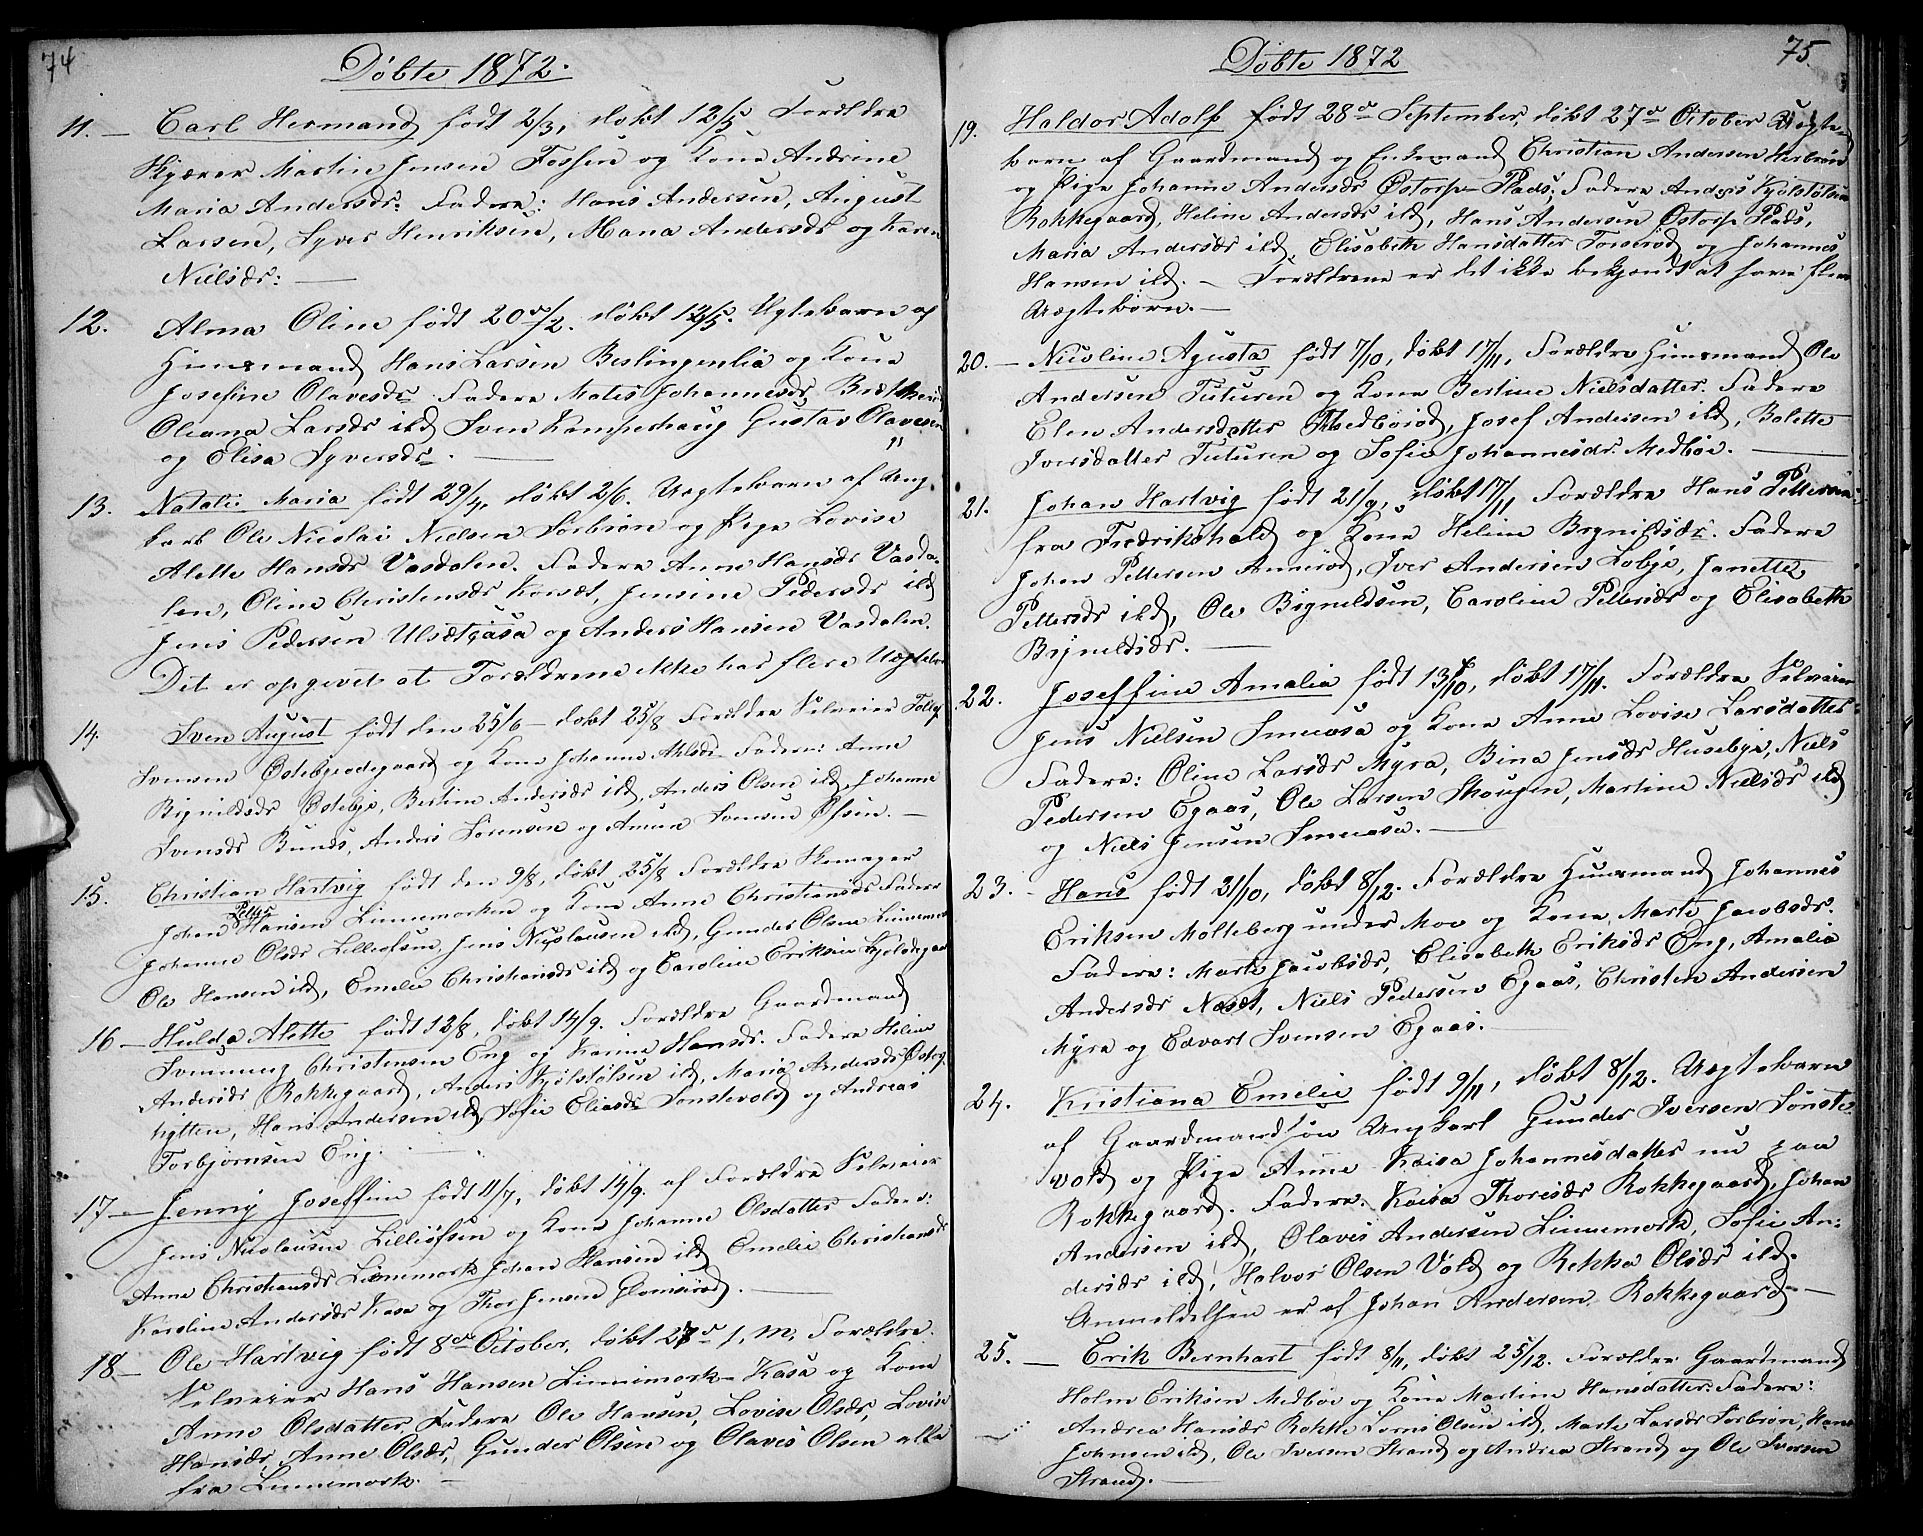 74
Døbte 1872.
11. — Carl Hermand født 2/3, døbt 12/5 Forældre
Skjærer Martin Jensen Fossen og Kone Andrine
Maria Andersdr. Fadere: Hans Andersen, August
Larsen, Syver Henriksen, Mana Andersdr og Karen
Nielsdr: —
12. Alma Oline født 20de/2. døbt 12/5. Ugtebarn af
Huusmand Hans Larsen Beslingenlia og Kone
Josefine Olavesdr. Fadere Mates Johannesdr
Oliana Larsdr ibd Sven Kamperhaug Gustav Olavesen
og Elisa Syversdr. —
13. Natalie Maria født 29/4, døbt 2/6. Uægtebarn af Ung
karl Ole Nicolai Nielsen Sørbrøn og Pige Lovise
Alette Hansdr Vasdalen. Fadere Anne Hansdr Vasda-
len, Oline Christensdr Korsæt, Jensine Pedersdr ibd
Jens Pedersen Ulsætsaasa og Anders Hansen Vasdalen.
Det er opgivet at Forældrene ikke har flere Uægteb
14. Sven August født den 25/6 — døbt 25/8 Forældre Selveier Tollef
Svensen Østebyeødegaard og Kone Johanne Akselsdr Fadere: Anne
Bignildsdr Østebye, Bertine Andersdr ibd, Anders Olsen ibd, Johanne
Svensdr Bunds, Anders Sørensen og Amun Svensen Øfsen. —
15. Christian Hartvig født den 9/8, døbt 25/8 Forældre Skomager
Johan Peter Hansen Linnemorken og Kone Anne Christiansdr Fadere
Johanne Olsdr Lilleøfsen, Jens Nyslausen ibd, Gunder Olsen Linnemork
Ole Hansen ibd, Emelie Christiansdr ibd og Caroline Eriksen
16 — Hulda Alette født 12/8, døbt 14/9. Forældre Gaardmand
Svenning Christensen Eng og Karine Hansdr. Fadere Heline
Andersdr Rokkegaard, Anders Kjølstølsen ibd, Maria Andersdr Østorp
hytten, Hans Andersen ibd, Sofie Eliasdr Sønstevold og Andreas
Torbjørnsen Eng. —
17 — Jenny Joseffine født 11/7, døbt 14/9. af Forældre Selveier
Jens Nicolausen Lilleøfsen og Kone Johanne Olsdatter Fadere:
Anne Christiansdr Linnemork Johan Hansen ibd Emelie Christiansdr
Karoline Andersdr Kasa og Thor Jensen Glomsrød. —
18 — Ole Hartvig født 8de October, døbt 27de s. M. Forældre.
Selveier Hans Hansen Linnemork Kasa og Kone
Anne Olsdatter, Fadere Ole Hansen, Lovise Olsdr, Lovise
Hansdr, Anne Olsdr, Gunder Olsen og Olaves Olsen alle
fra Linnemork. —
75.
Døbte 1872
19. Haldor Adolf født 28de September, døbt 27de October Uægte
barn af Gaardmand og Enkemand Christian Andersen Herbrøn
og Pige Johanne Andersdr Østorp Plads, Fadere Anders Kjølstølsen
Rokkegaard, Heline Andersdr ibd, Hans Andersen Østorp Plads,
Maria Andersdr ibd, Elisabeth Hansdatter Torserød og Johannes
Hansen ibd. — Forældrene er det ikke bekjendt at have flere
Uægtebørn. —
20. — Nicoline Agusta født 7/10, døbt 17/11, Forældre Huusmand Ole
Andersen Tuturen og Kone Bertine Nielsdatter. Fadere
Elen Andersdatter Thedbørød, Josef Andersen ibd, Bolette
Iversdatter Tuturen og Sofie Johannesdr. Medbøe. —
21. Johan Hartvig født 21/9, døbt 17/11 Forældre Hans Pettersen
fra Fredrikshald og Kone Heline Brynildsdr. Fadere
Johan Pettersen Annerød, Iver Andersen Lobye, Janette
Pettersdr ibd, Ole Bignildsen, Caroline Pettersdr og Elisabeth
Brynildsdr. —
22. Joseffine Amalia født 13/10, døbt 17/11. Forældre Selveier
Jens Nielsen Smuasa og Kone Anne Lovise Larsdatter
Fadere: Oline Larsdr Myra, Bina Jensdr Husebye, Niels
Pedersen Egaas, Ole Larsen Skougen, Martine Nielsdr ibd
og Niels Jensen Smuasa. —
23. — Hans født 21/10, døbt 8/12. Forældre Huusmand Johannes
Eriksen Molteberg under Moe og Kone Marte Jacobsdr.
Fadere: Marte Jacobsdr, Elisabeth Eriksdr Eng, Amalia
Andersdr Næset, Niels Pedersen Egaas, Christen Andersen
Myra og Edvart Svensen Egaas. —
24. Kristiana Emelie født 9/11, døbt 8/12. Uægtebarn
af Gaardmandsøn Ungkarl Gunder Iversen Sønste
vold og Pige Anne Kaisa Johannesdatter nu paa
Rokkegaard. Fadere. Kaisa Thoresdr Rokkegaard, Johan
Andersen ibd, Olaves Andersen Linnemork, Sofie An-
dersdr ibd, Halvor Olsen Vold og Rekka Olsdr ibd.
Anmeldelsen er af Johan Andersen Rokkegaard —
25. — Erik Bernhart født 8/11, døbt 25/12. Forældre Gaardmand
Holm Eriksen Medbøe og Kone Martine Hansdatter. Fadere:
Andrea Hansdr Rokke Lorns Olsen ibd, Marte Larsdr Sørbrøn, Hans
Johnsen ibd, Ole Iversen Strand og Andrea Strand og Ole Iversen
Strand. —